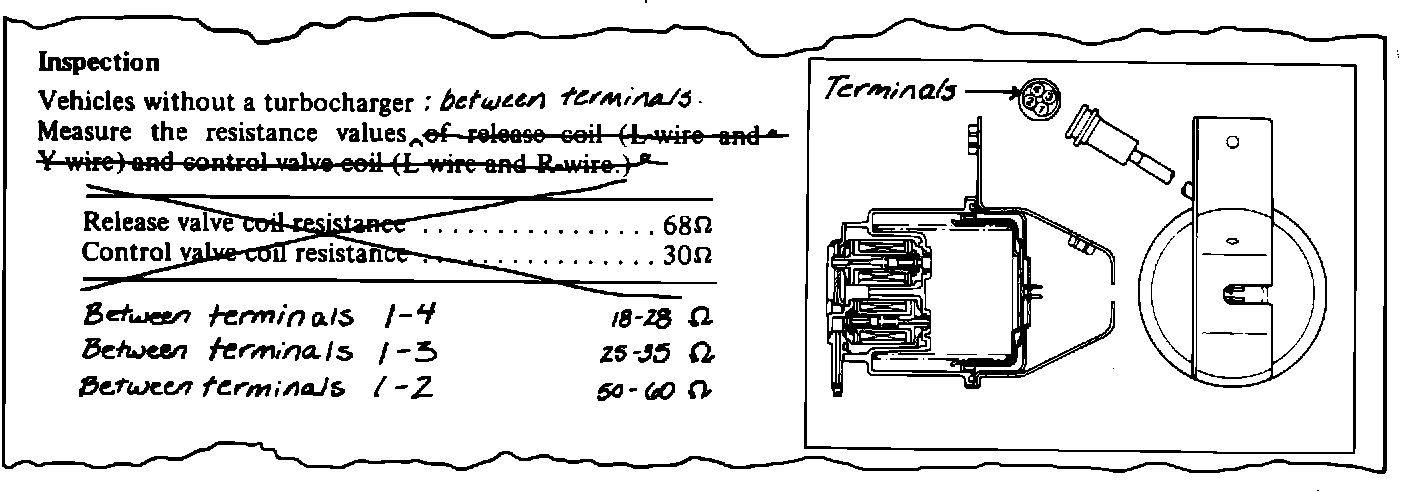 Inspection
Vehicles without a turbocharger : between terminals.
Measure the resistance values of release coil (L-wire and
Y-wire) and control valve coil (L-wire and R-wire.)
Release valve coil resistance ................ 68Ω
Control valve coil resistance ................ 30Ω
Between terminals 1-4 18-28 Ω
Between terminals 1-3 25-35 Ω
Between terminals 1-2 50-60 Ω
Terminals